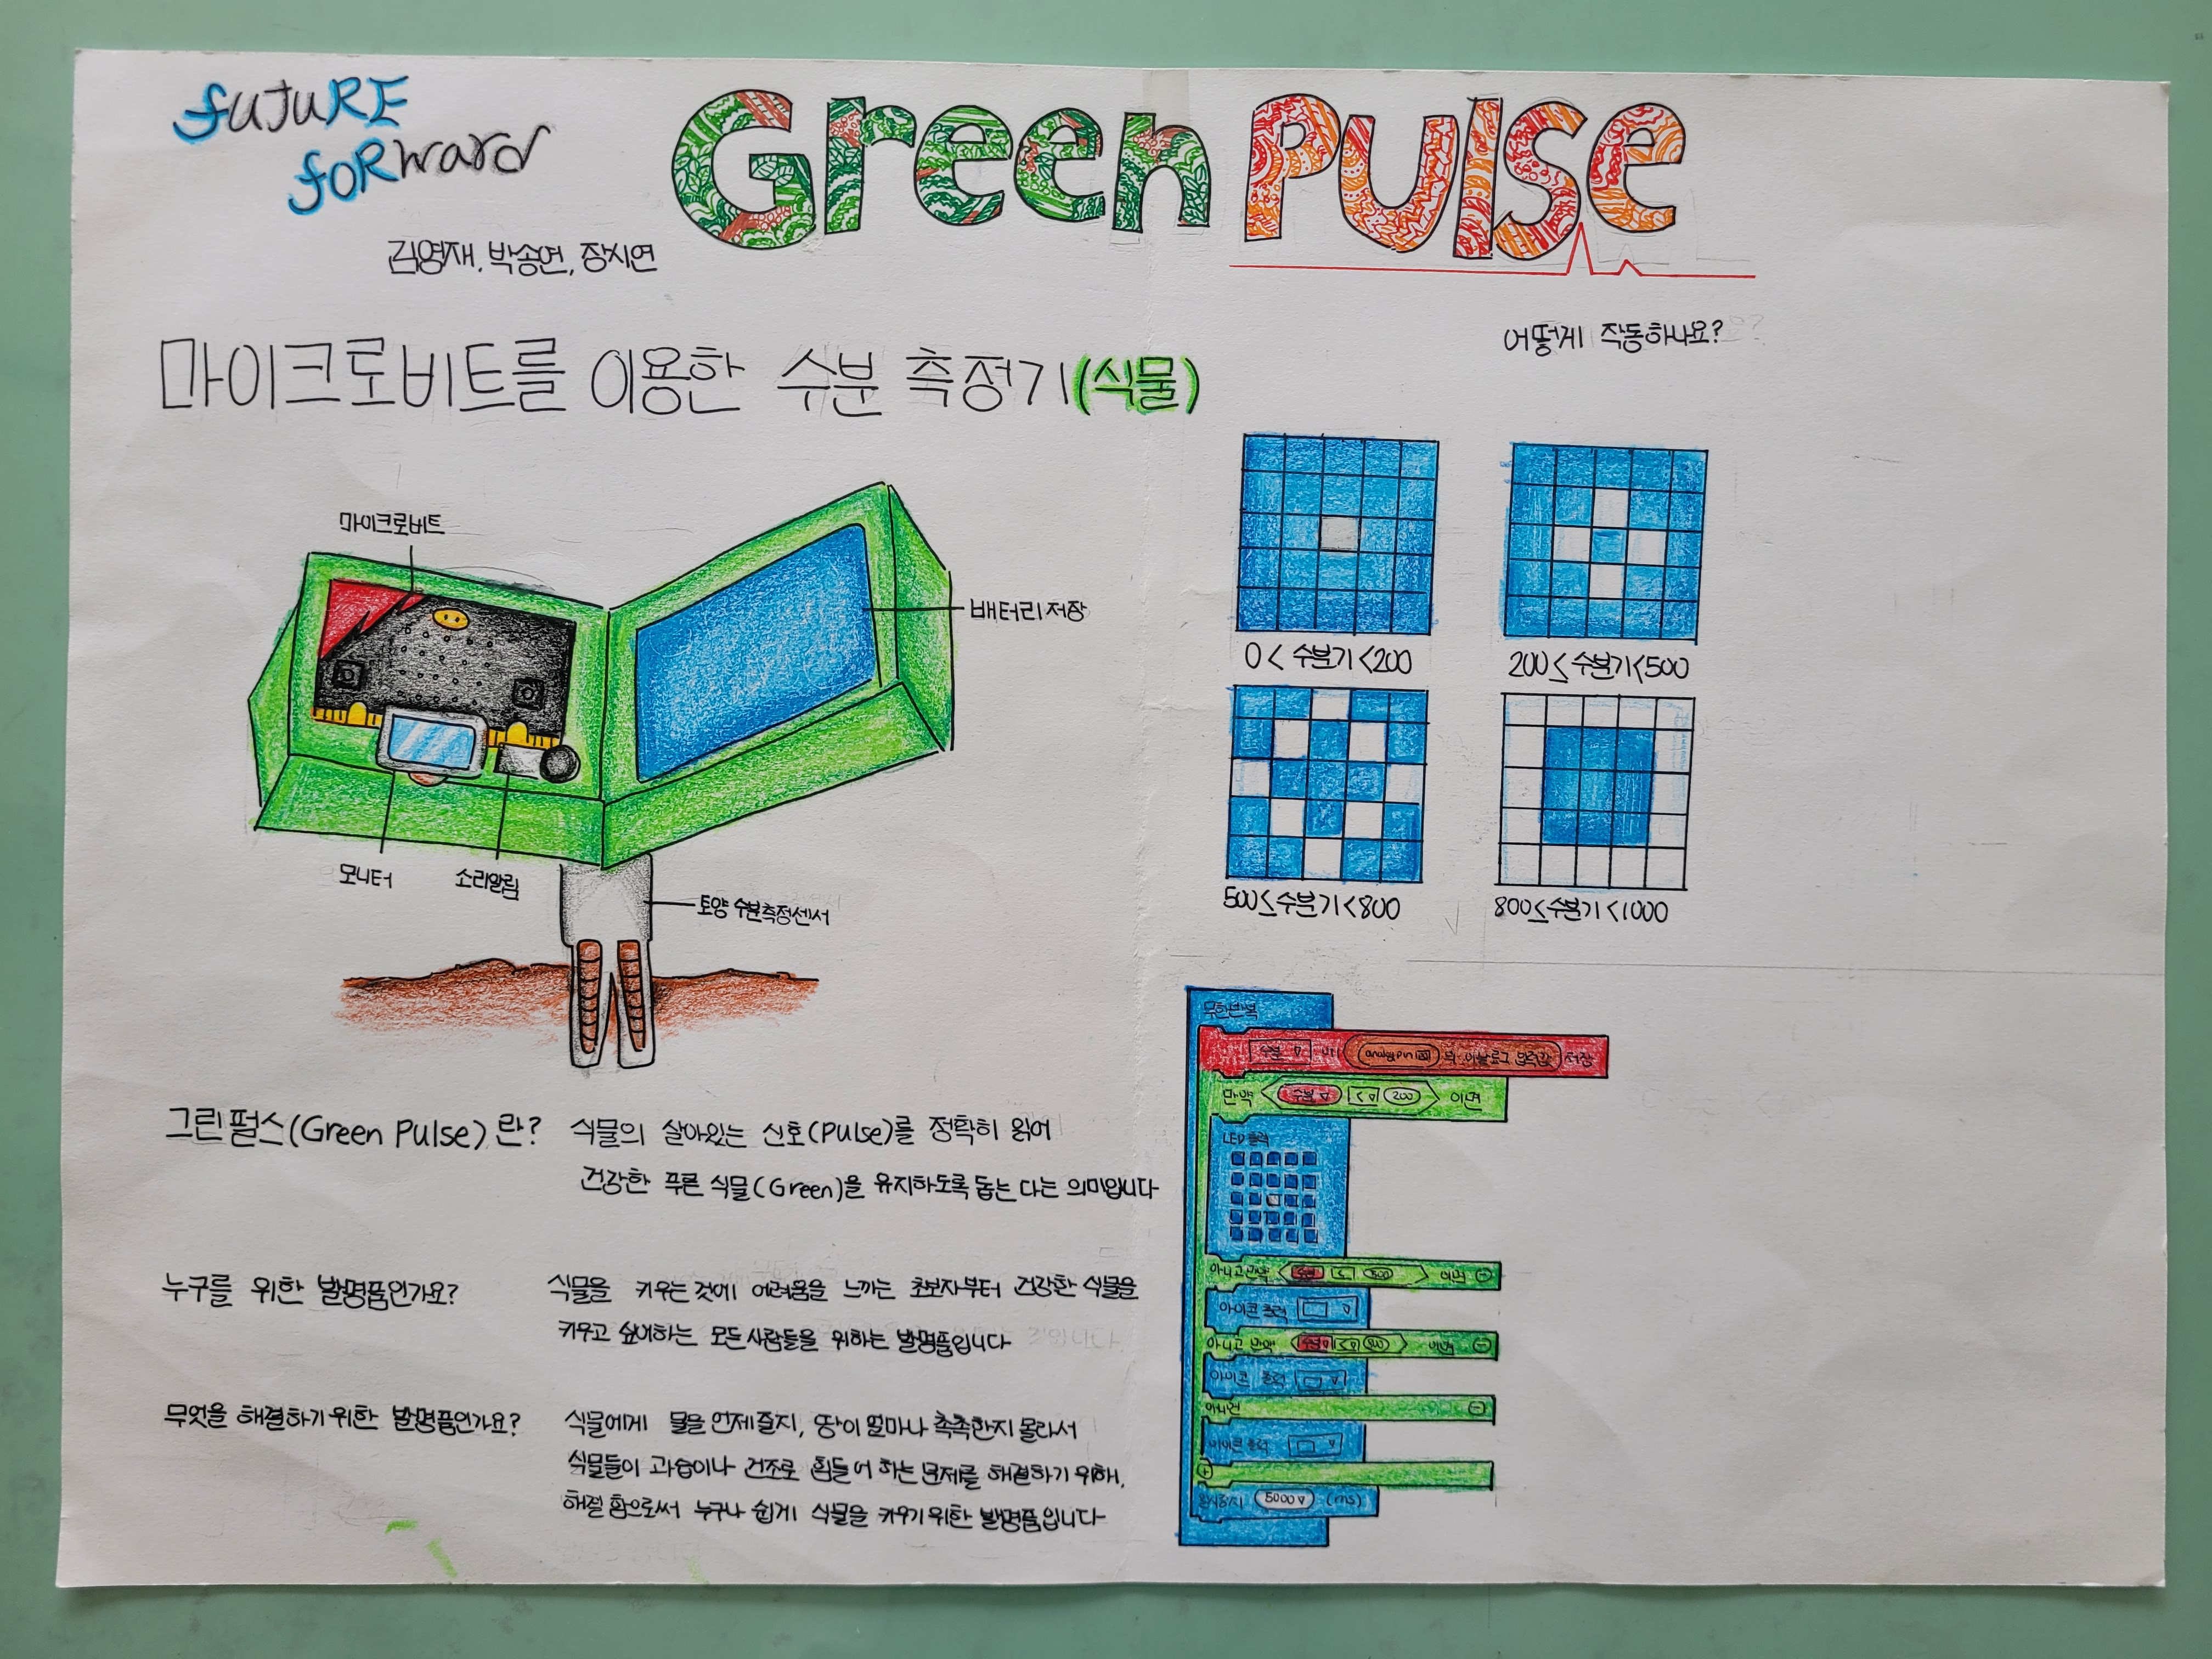 fuTuRE
foRward
Green Pulse
김영재, 박송연, 장시연
마이크로비트를 이용한 수분 측정기(식물)
어떻게 작동하나요?
마이크로비트
배터리 저장
모니터
소리알림
토양 수분측정센서
0 < 수분기 < 200
200 ≤ 수분기 < 500
500 ≤ 수분기 < 800
800 ≤ 수분기 < 1000
그린펄스(Green Pulse)란? 식물의 살아있는 신호(Pulse)를 정확히 읽어
건강한 푸른 식물(Green)을 유지하도록 돕는다는 의미입니다
누구를 위한 발명품인가요? 식물을 키우는것에 어려움을 느끼는 초보자부터 건강한 식물을
키우고 싶어하는 모든사람들을 위하는 발명품입니다
무엇을 해결하기위한 발명품인가요? 식물에게 물을 언제줄지, 땅이 얼마나 촉촉한지 몰라서
식물들이 과습이나 건조로 힘들어 하는 문제를 해결하기 위해,
해결함으로써 누구나 쉽게 식물을 키우기위한 발명품입니다
무한반복
수분 analog pin 의 아날로그 입력값 저장
만약 수분 < 200 이면
LED 출력
아니고만약 수분 < 500 이면
아이콘 출력
아니고 만약 수분 < 800 이면
아이콘 출력
아니면
아이콘 출력
일시중지 5000 (ms)